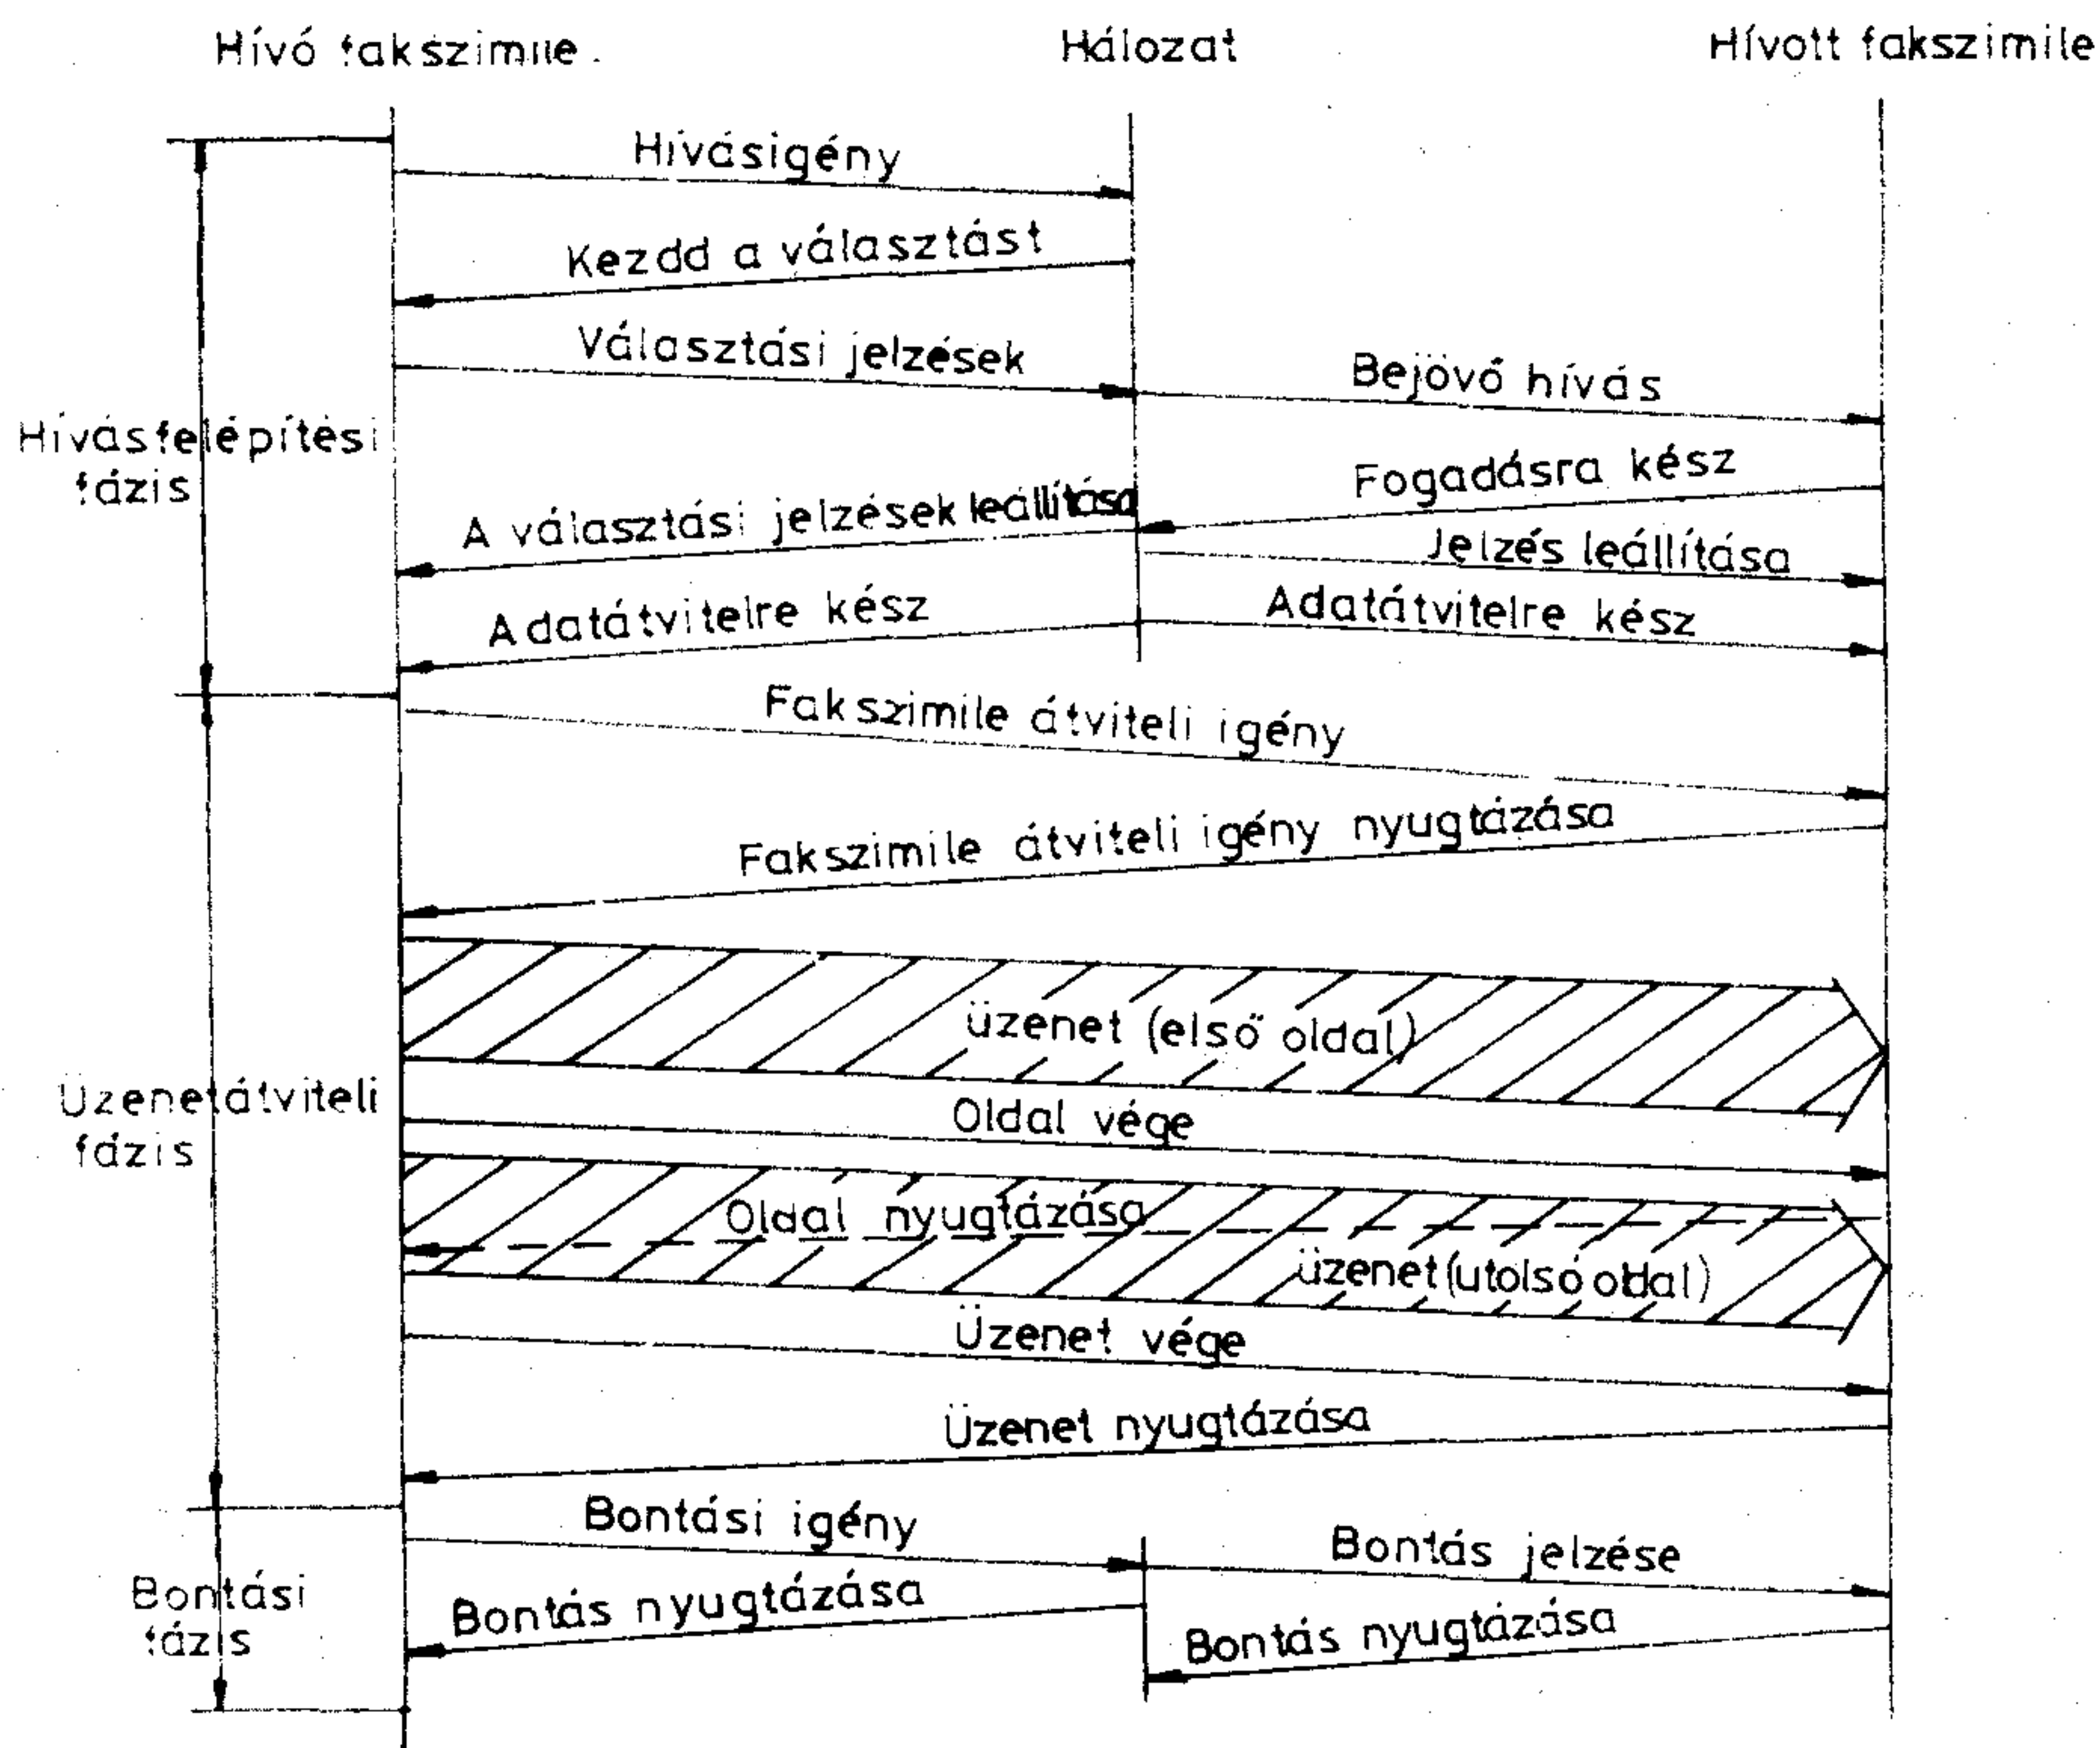 Hívó fakszimile.
Hálozat
Hívott fakszimile
Hívásigény
Kezdd a választást
Választási jelzések
Bejövő hívás
Hívásfelépítési
fázis
Fogadásra kész
A választási jelzések leállítása
Jelzés leállítása
Adatátvitelre kész
Adatátvitelre kész
Fakszimile átviteli igény
Fakszimile átviteli igény nyugtázása
üzenet (első oldal)
Üzenetátviteli
fázis
Oldal vége
Oldal nyugtázása
üzenet (utolsó oldal)
Üzenet vége
Üzenet nyugtázása
Bontási igény
Bontás jelzése
Bontási
fázis
Bontás nyugtázása
Bontás nyugtázása